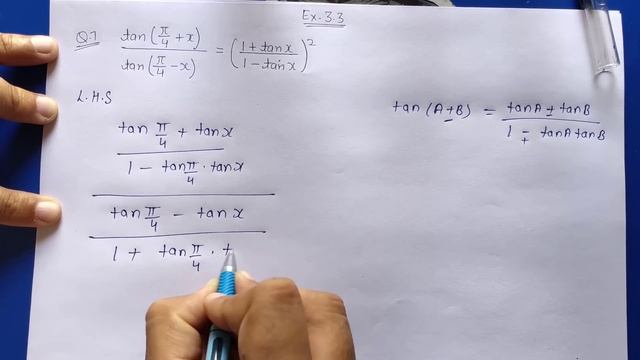 Ex-3.3
Q.7 tan(π/4 + x) / tan(π/4 - x) = (1 + tan x / 1 - tan x)²
L.H.S
tan(A ± B) = tanA ± tanB / 1 ∓ tanA tanB
tan π/4 + tan x
1 - tan π/4 · tan x
tan π/4 - tan x
1 + tan π/4 · t